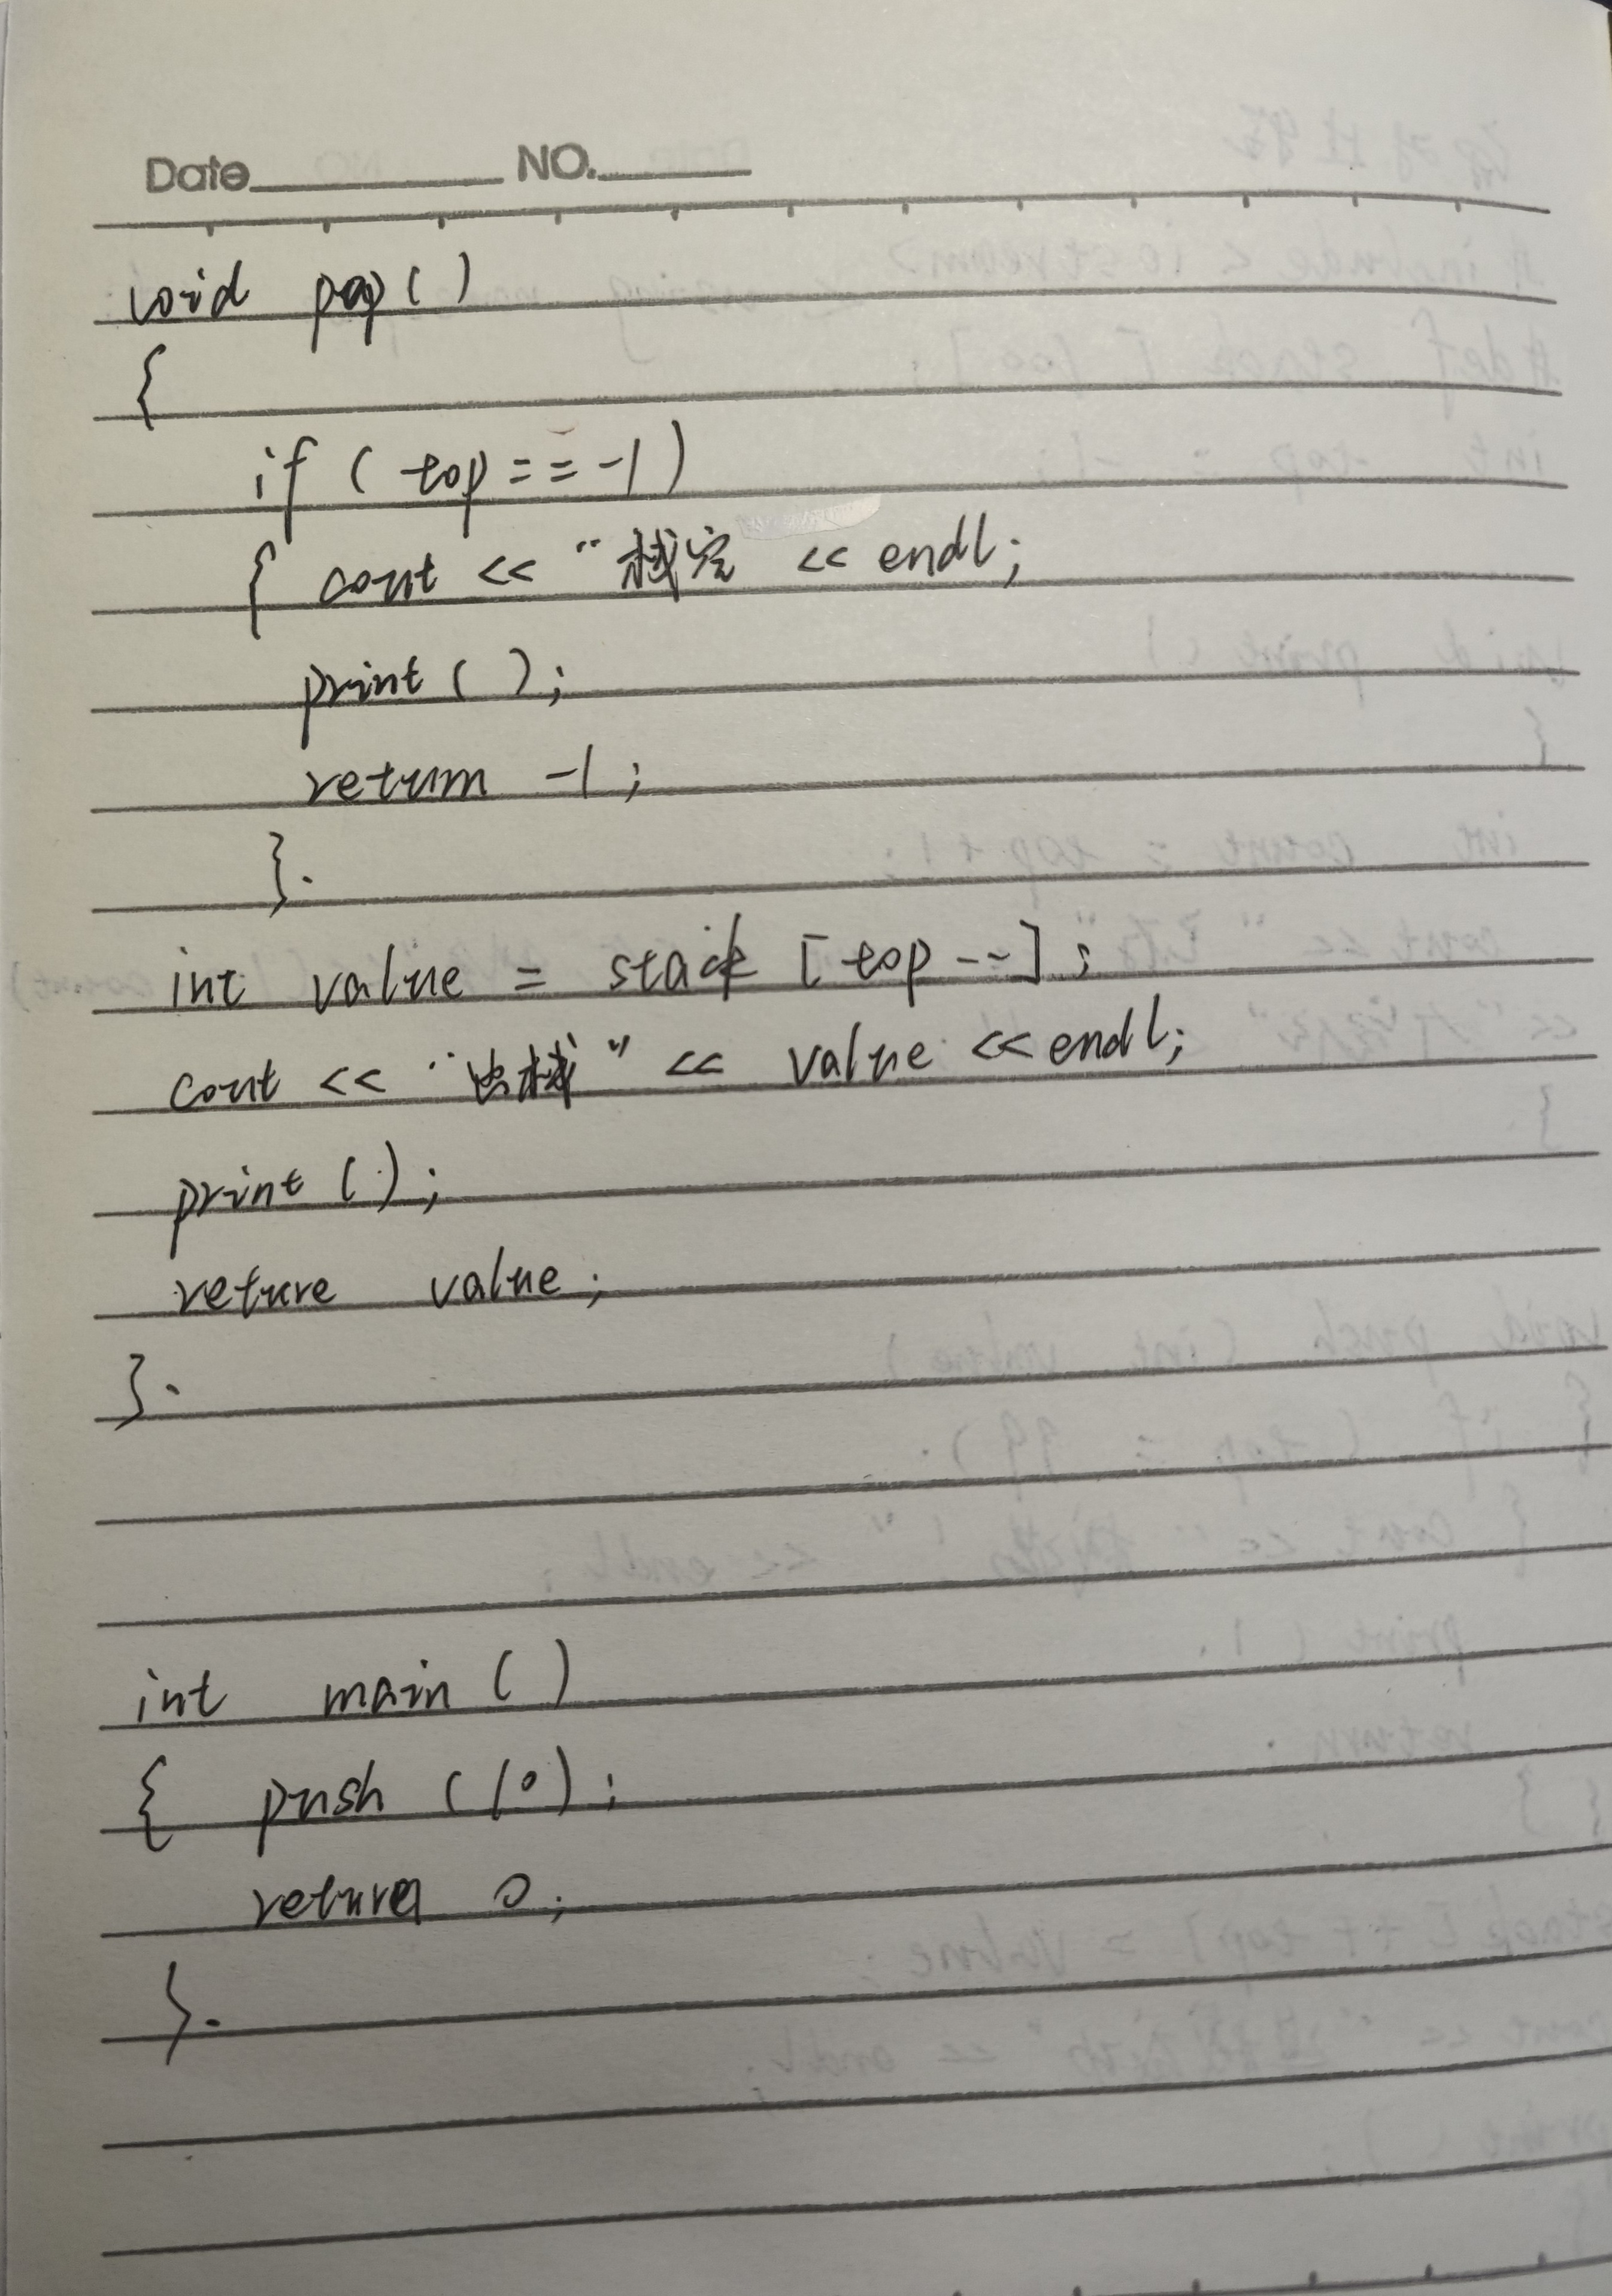 Date NO.
void pop()
{
if (top == -1)
{ cout << "栈空 << endl;
print ( );
return -1;
}.
int value = stack [top --];
cout << "出栈" << value << endl;
print ( );
return value;
}.
int main ( )
{ push (10);
return 0;
}.